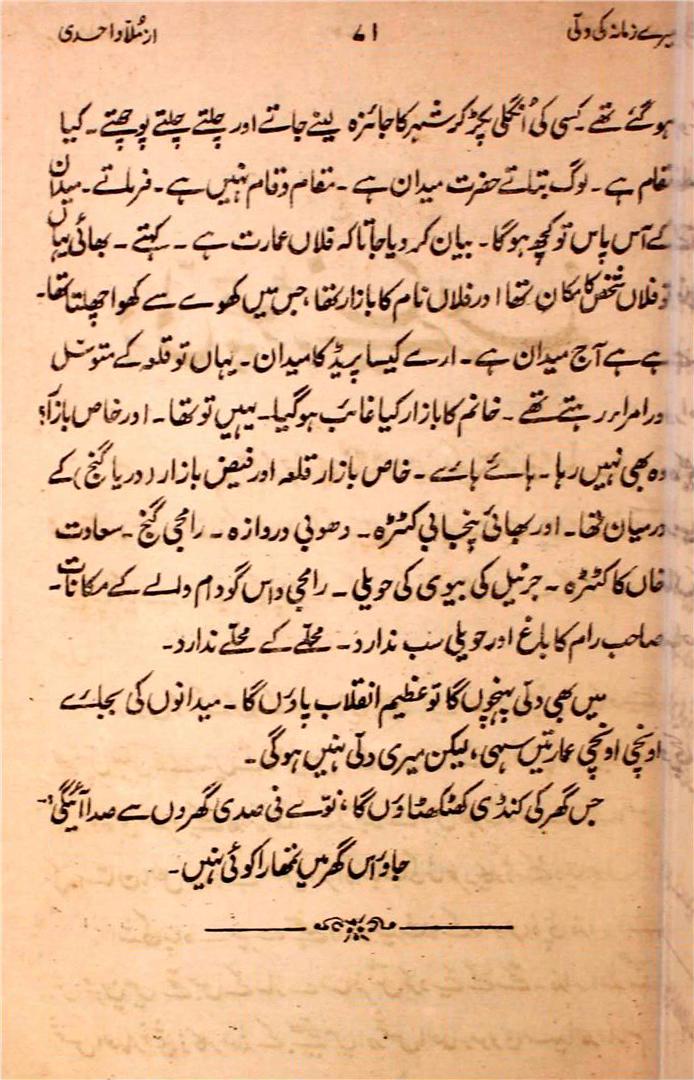 میرے زمانہ کی دلّی ۷۱ از مُلّا واحدی
ہوگئے تھے۔ کسی کی اُنگلی پکڑ کر شہر کا جائزہ لینے جاتے اور چلتے چلتے پوچھتے۔ کیا
مقام ہے۔ لوگ بتاتے حضرت میدان ہے۔ مقام وقام نہیں ہے۔ فرماتے۔ میدان
کے آس پاس تو کچھ ہوگا۔ بیان کر دیا جاتا کہ فلاں عمارت ہے۔ کہتے۔ بھائی یہاں
تو فلاں شخص کا مکان تھا اور فلاں نام کا بازار تھا، جس میں کھوے سے کھوا چھلتا تھا۔
ہے ہے آج میدان ہے۔ ارے کیسا پریڈ کا میدان۔ یہاں تو قلعہ کے متوسل
اور امراء رہتے تھے۔ خانم کا بازار کیا غائب ہوگیا۔ یہیں تو تھا۔ اور خاص بازار؟
وہ بھی نہیں رہا۔ ہائے ہائے۔ خاص بازار قلعہ اور فیض بازار (دریا گنج) کے
درمیان تھا۔ اور بھائی پنجابی کٹڑہ۔ دھوبی دروازہ۔ رامجی گنج۔ سعادت
خاں کا کٹڑہ۔ جرنیل کی بیوی کی حویلی۔ رامجی داس گودام والے کے مکانات۔
صاحب رام کا باغ اور حویلی سب ندارد۔ محلّے کے محلّے ندارد۔
میں بھی دلّی پہنچوں گا تو عظیم انقلاب پاؤں گا۔ میدانوں کی بجائے
اونچی اونچی عمارتیں سہی، لیکن میری دلّی نہیں ہوگی۔
جس گھر کی کنڈی کھٹکھٹاؤں گا، نوّے فی صدی گھروں سے صدا آئیگی:۔
جاؤ اس گھر میں تمھارا کوئی نہیں۔